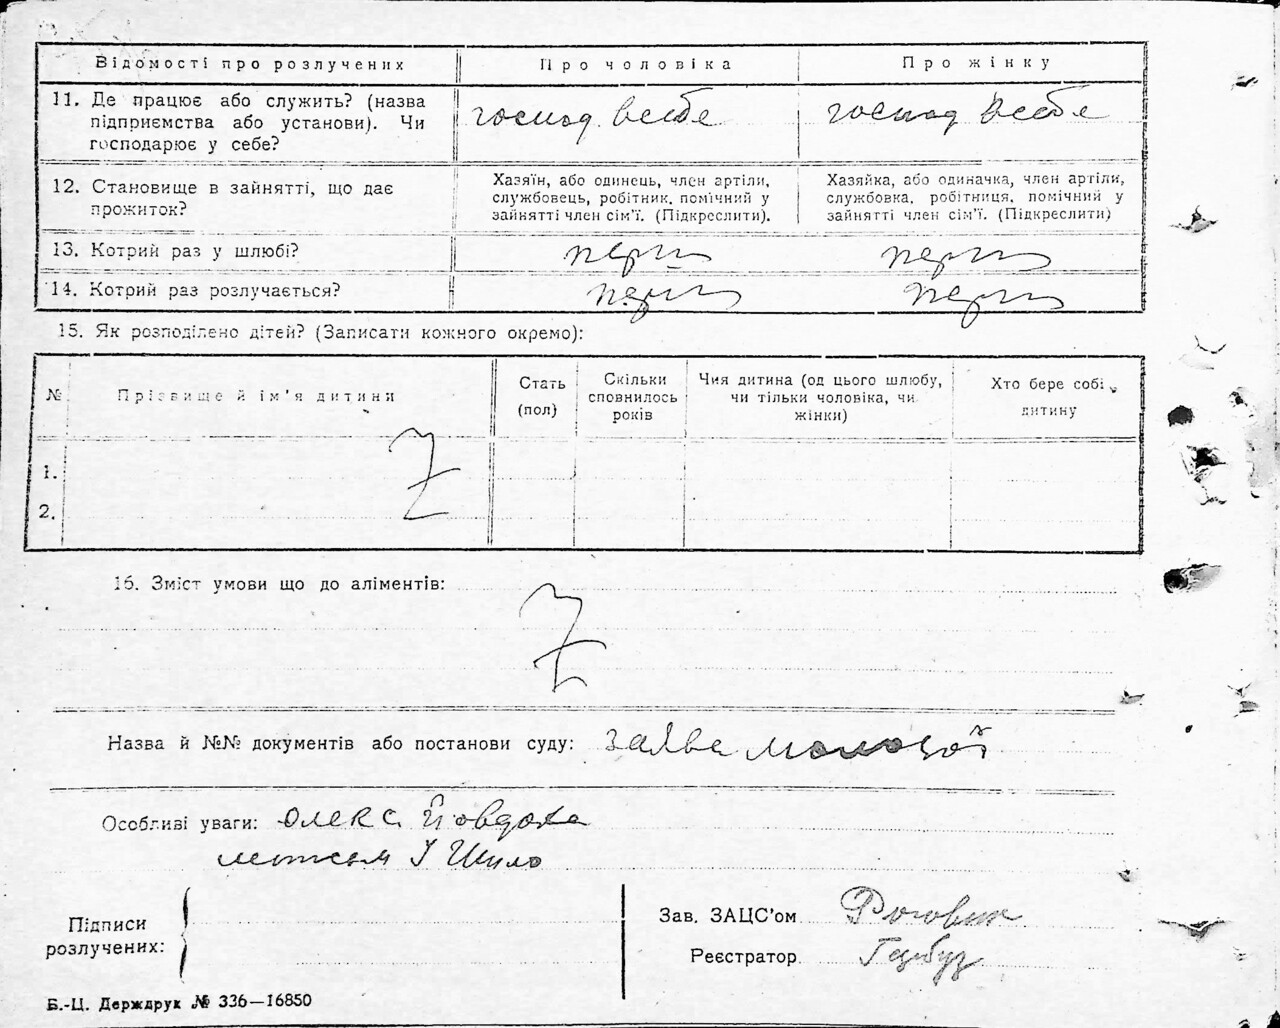 Відомості про розлучених Про чоловіка Про жінку
11. Де працює або служить? (назва підприємства або установи). Чи господарює у себе?
господ. в себе господ в себе
12. Становище в зайнятті, що дає прожиток?
Хазяїн, або одинець, член артілі, службовець, робітник, помічний у зайнятті член сім'ї. (Підкреслити).
Хазяйка, або одиначка, член артілі, службовка, робітниця, помічний у зайнятті член сім'ї. (Підкреслити)
13. Котрий раз у шлюбі? перш перш
14. Котрий раз розлучається? перш перш
15. Як розподілено дітей? (Записати кожного окремо):
№ Прізвище й ім'я дитини Стать (пол) Скільки сповнилось років Чия дитина (од цього шлюбу, чи тільки чоловіка, чи жінки) Хто бере собі дитину
1.
2.
16. Зміст умови що до аліментів:
Назва й №№ документів або постанови суду: заява молодої
Особливі уваги: Олекс. Йовдоха
Шило
Підписи розлучених:
Зав. ЗАЦС'ом Роговик
Реєстратор Гарбуз
Б.-Ц. Держдрук № 336—16850